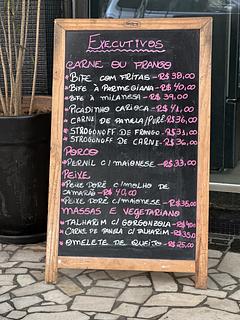 EXECUTIVOS
CARNE OU FRANGO
* BIFE COM FRITAS - R$ 38,00
* BIFE À PARMEGIANA - R$ 40,00
* BIFE À MILANESA - R$ 39,00
* PICADINHO CARIOCA - R$ 41,00
* CARNE DE PANELA/PURÊ R$ 36,00
* STROGONOFF DE FRANGO - R$ 31,00
* STROGONOFF DE CARNE - R$ 36,00
PORCO
* PERNIL C/ MAIONESE - R$ 33,00
PEIXE
* PEIXE DORÊ C/ MOLHO DE
CAMARÃO - R$ 40,00
* PEIXE DORÊ C/ MAIONESE - R$ 35,00
MASSAS E VEGETARIANO
* TALHARIM C/ GORGONZOLA - R$ 40,00
* CARNE DE PANELA C/ TALHARIM - R$ 35,00
* OMELETE DE QUEIJO - R$ 25,00